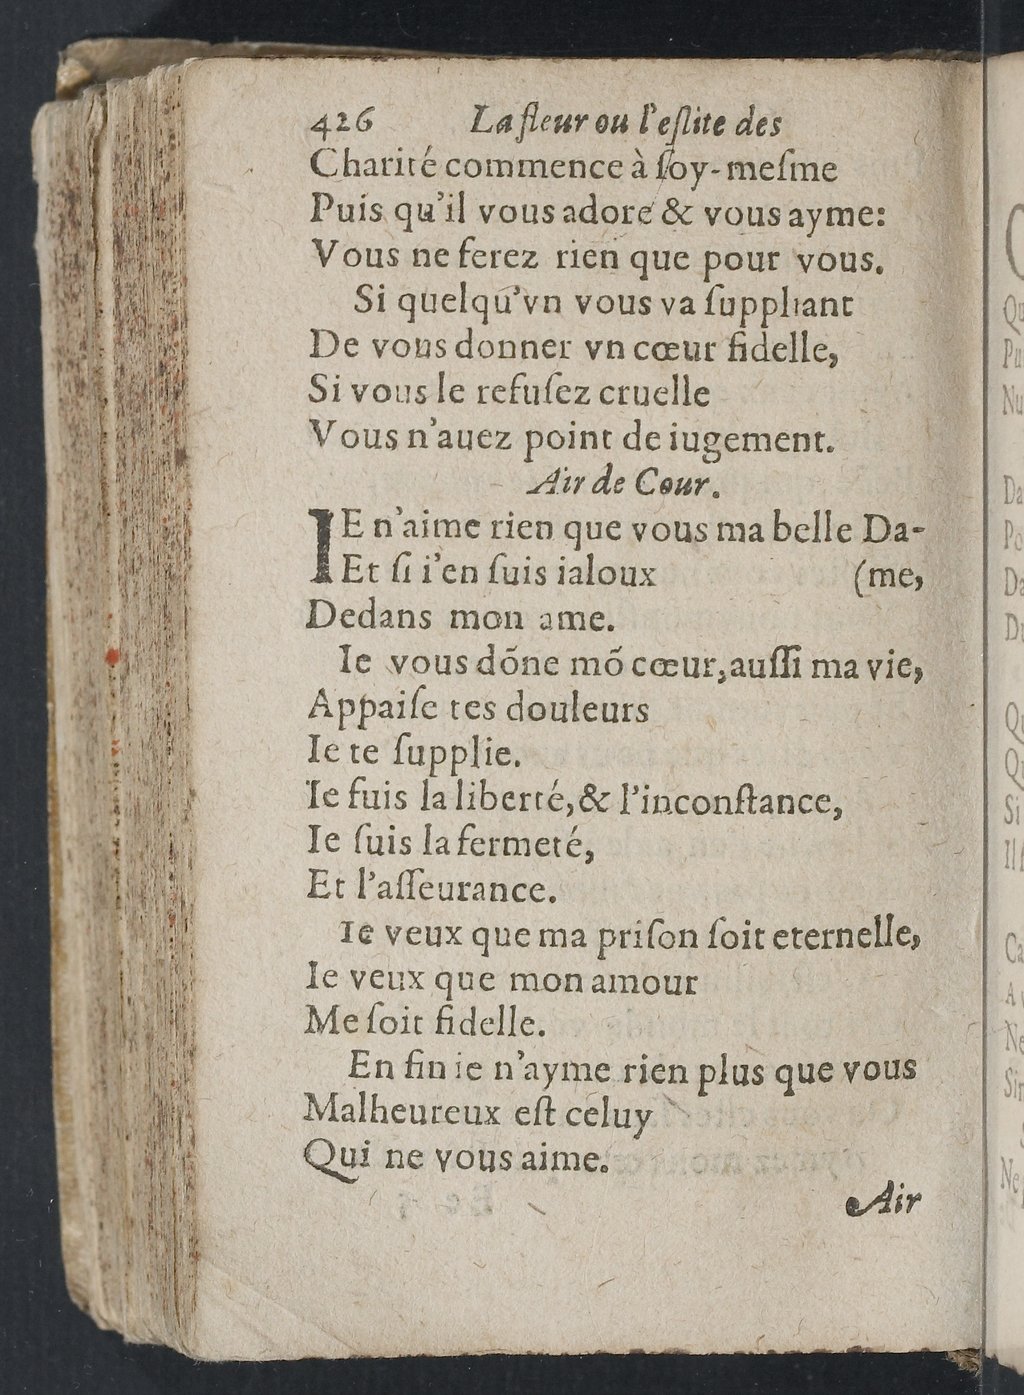 426 La fleur ou l'eſlite des
Charité commence à ſoy-meſme
Puis qu'il vous adore & vous ayme:
Vous ne ferez rien que pour vous.
Si quelqu'vn vous va ſuppliant
De vous donner vn cœur fidelle,
Si vous le refuſez cruelle
Vous n'auez point de iugement.
Air de Cour.
IE n'aime rien que vous ma belle Da-
Et ſi i'en ſuis ialoux (me,
Dedans mon ame.
Ie vous dõne mõ cœur, auſſi ma vie,
Appaiſe tes douleurs
Ie te ſupplie.
Ie fuis la liberté, & l'inconſtance,
Ie ſuis la fermeté,
Et l'aſſeurance.
Ie veux que ma priſon ſoit eternelle,
Ie veux que mon amour
Me ſoit fidelle.
En fin ie n'ayme rien plus que vous
Malheureux eſt celuy
Qui ne vous aime.
Air
Qu
Pu
Nu
Da
Po
Da
Qu
Si
Il
Ca
A
Ne
Sin
Ne